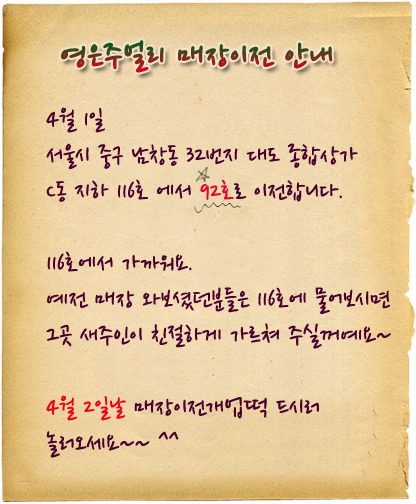 영은주얼리 매장이전 안내
4월 1일
서울시 중구 남창동 32번지 대도 종합상가
C동 지하 116호 에서 92호로 이전합니다.
116호에서 가까워요.
예전 매장 와보셨던분들은 116호에 물어보시면
그곳 새주인이 친절하게 가르쳐 주실꺼예요~
4월 2일날 매장이전개업떡 드시러
놀러오세요~~ ^^